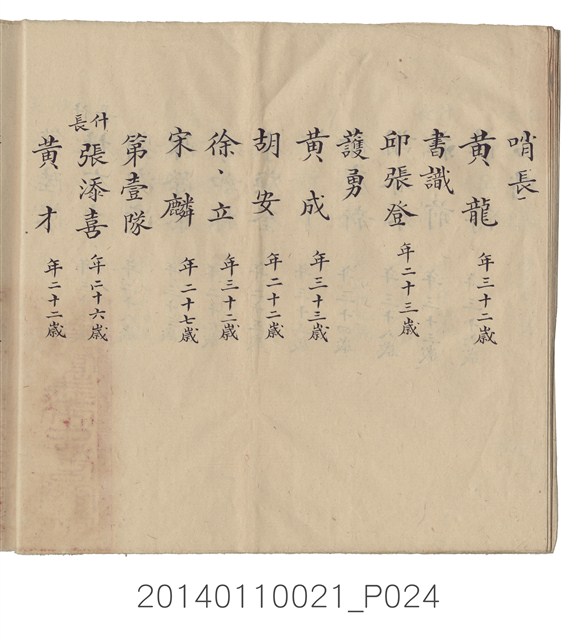 哨長
黄龍 年三十二歲
書識
邱張登 年二十三歲
護勇
黄成 年三十三歲
胡安 年二十二歲
徐立 年三十二歲
宋麟 年二十七歲
第壹隊
什長 張添喜 年二十六歲
黄才 年二十二歲
20140110021_P024